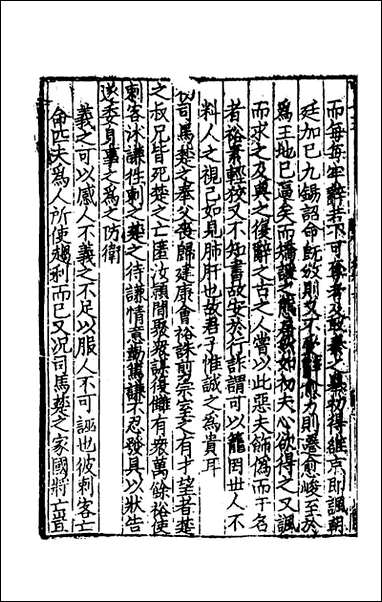 而每每牢辭若不可奪者及敢秦之義初得維京即諷朝
廷加已九錫詔命既敀則又不敢辭愈力則遷愈峻至於
為王地已逼矣而猶讓之態益欲如初夫心欲得之又諷
而求之及與之復辭之古之人嘗以此惡夫飾偽而干名
者裕素輕狡又不知書故安於行詐謂可以籠罔世人不
料人之視己如見肺肝也故君子惟誠之為貴耳
司馬楚之奉父喪歸建康會裕誅剪宗室之有才望者楚
之叔兄皆死楚之亡匿汝潁間聚衆謀復讎有衆萬餘裕使
刺客沐謙往刺之楚之待謙情意勤篤謙不忍發具以狀告
遂委身事之為之防衛
義之可以感人不義之不足以服人不可誣也彼刺客亡
命匹夫為人所使趨利而已又況司馬楚之家國將亡豈